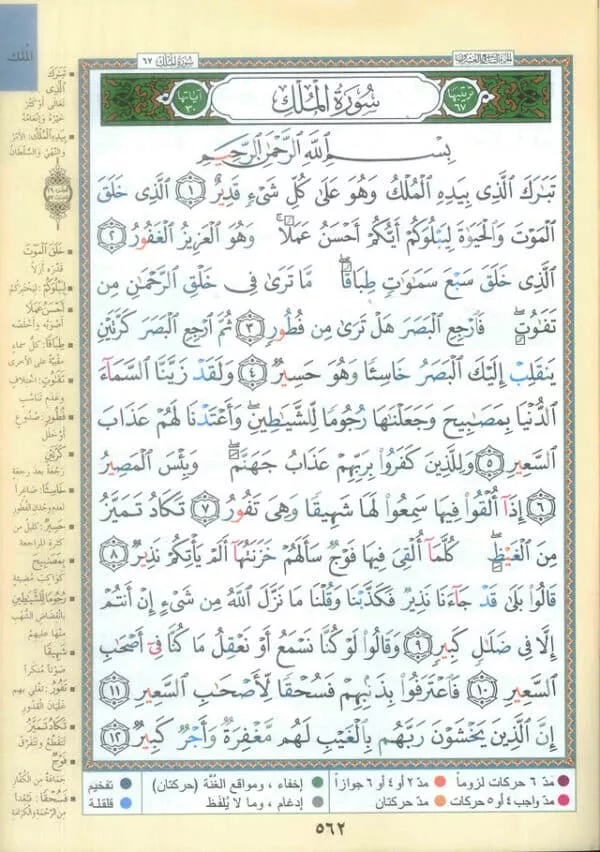 الملك
الجزء التاسع والعشرون
سُورَةُ المُلْكِ ٦٧
ترتيبها ٦٧
سُورَةُ الْمُلْكِ
آياتها ٣٠
بِسْمِ ٱللَّهِ ٱلرَّحْمَٰنِ ٱلرَّحِيمِ
تَبَٰرَكَ ٱلَّذِى بِيَدِهِ ٱلْمُلْكُ وَهُوَ عَلَىٰ كُلِّ شَىْءٍ قَدِيرٌ ١ ٱلَّذِى خَلَقَ
ٱلْمَوْتَ وَٱلْحَيَوٰةَ لِيَبْلُوَكُمْ أَيُّكُمْ أَحْسَنُ عَمَلًا ۚ وَهُوَ ٱلْعَزِيزُ ٱلْغَفُورُ ٢
ٱلَّذِى خَلَقَ سَبْعَ سَمَٰوَٰتٍ طِبَاقًا ۖ مَّا تَرَىٰ فِى خَلْقِ ٱلرَّحْمَٰنِ مِن
تَفَٰوُتٍ ۖ فَٱرْجِعِ ٱلْبَصَرَ هَلْ تَرَىٰ مِن فُطُورٍ ٣ ثُمَّ ٱرْجِعِ ٱلْبَصَرَ كَرَّتَيْنِ
يَنقَلِبْ إِلَيْكَ ٱلْبَصَرُ خَاسِئًا وَهُوَ حَسِيرٌ ٤ وَلَقَدْ زَيَّنَّا ٱلسَّمَآءَ
ٱلدُّنْيَا بِمَصَٰبِيحَ وَجَعَلْنَٰهَا رُجُومًا لِّلشَّيَٰطِينِ ۖ وَأَعْتَدْنَا لَهُمْ عَذَابَ
ٱلسَّعِيرِ ٥ وَلِلَّذِينَ كَفَرُوا۟ بِرَبِّهِمْ عَذَابُ جَهَنَّمَ ۖ وَبِئْسَ ٱلْمَصِيرُ
٦ إِذَآ أُلْقُوا۟ فِيهَا سَمِعُوا۟ لَهَا شَهِيقًا وَهِىَ تَفُورُ ٧ تَكَادُ تَمَيَّزُ
مِنَ ٱلْغَيْظِ ۖ كُلَّمَآ أُلْقِىَ فِيهَا فَوْجٌ سَأَلَهُمْ خَزَنَتُهَآ أَلَمْ يَأْتِكُمْ نَذِيرٌ ٨
قَالُوا۟ بَلَىٰ قَدْ جَآءَنَا نَذِيرٌ فَكَذَّبْنَا وَقُلْنَا مَا نَزَّلَ ٱللَّهُ مِن شَىْءٍ إِنْ أَنتُمْ
إِلَّا فِى ضَلَٰلٍ كَبِيرٍ ٩ وَقَالُوا۟ لَوْ كُنَّا نَسْمَعُ أَوْ نَعْقِلُ مَا كُنَّا فِىٓ أَصْحَٰبِ
ٱلسَّعِيرِ ١٠ فَٱعْتَرَفُوا۟ بِذَنۢبِهِمْ فَسُحْقًا لِّأَصْحَٰبِ ٱلسَّعِيرِ ١١
إِنَّ ٱلَّذِينَ يَخْشَوْنَ رَبَّهُم بِٱلْغَيْبِ لَهُم مَّغْفِرَةٌ وَأَجْرٌ كَبِيرٌ ١٢
تَبَارَكَ الَّذِي
تعالى أو كثر
خيره وإنعامه
بِيَدِهِ المُلْكُ: الأمر
والنهي والسلطان
خَلَقَ الْمَوْتَ
قدّره أزلاً
لِيَبْلُوَكُمْ: ليختبركم
أَحْسَنُ عَمَلًا
أصوبه وأخلصه
طِبَاقًا: كل سماء
مقبّبة على الأخرى
تَفَاوُتٍ: اختلاف
وعدم تناسب
فُطُورٍ: صدوع
أو خلل
كَرَّتَيْنِ
رجعة بعد رجعة
خَاسِئًا: صاغراً
لعدم وجدان الفطور
حَسِيرٌ: كليل من
كثرة المراجعة
بِمَصَابِيحَ
كواكب مضيئة
رُجُومًا لِلشَّيَاطِينِ
بانقضاض الشهب
منها عليهم
شَهِيقًا
صوتاً منكراً
تَفُورُ: تغلي بهم
غليان القدور
تَكَادُ تَمَيَّزُ
تتقطع وتتفرق
فَوْجٌ
جماعة من الكفار
فَسُحْقًا: فبعداً
من الرحمة والكرامة
مدّ ٦ حركات لزوماً
مدّ ٢ أو ٤ أو ٦ جوازاً
إخفاء ، ومواقع الغُنَّة (حركتان)
تفخيم
مدّ واجب ٤ أو ٥ حركات
مدّ حركتان
إدغام ، وما لا يُلفَظ
قلقلة
٥٦٢